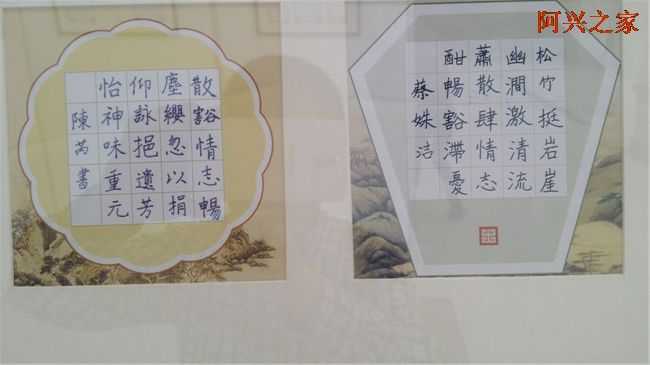 阿兴之家
散豁情志暢
塵纓忽以捐
仰詠挹遺芳
怡神味重元
陳芮書
松竹挺岩崖
幽澗激清流
蕭散肆情志
酣暢豁滯憂
蔡姝洁